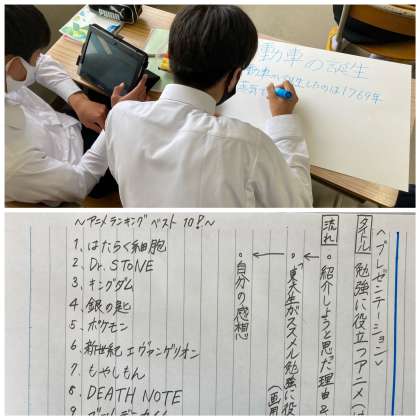 PUMA
動車の誕生
動車が誕生したのは1769年
蒸気
＜プレゼンテーション＞
タイトル 勉強に役立つアニメ(は
流れ 。紹介しようと思だ理由&
。"東大生がススメル勉強に役
(画用
。自分の感想
～アニメランキング ベスト10!～
1、はたらく細胞
2、Dr.STONE
3、キングダム
4、銀の匙
5、ポケモン
6、新世紀エヴァンゲリオン
7、もやしもん
8、DEATH NOTE